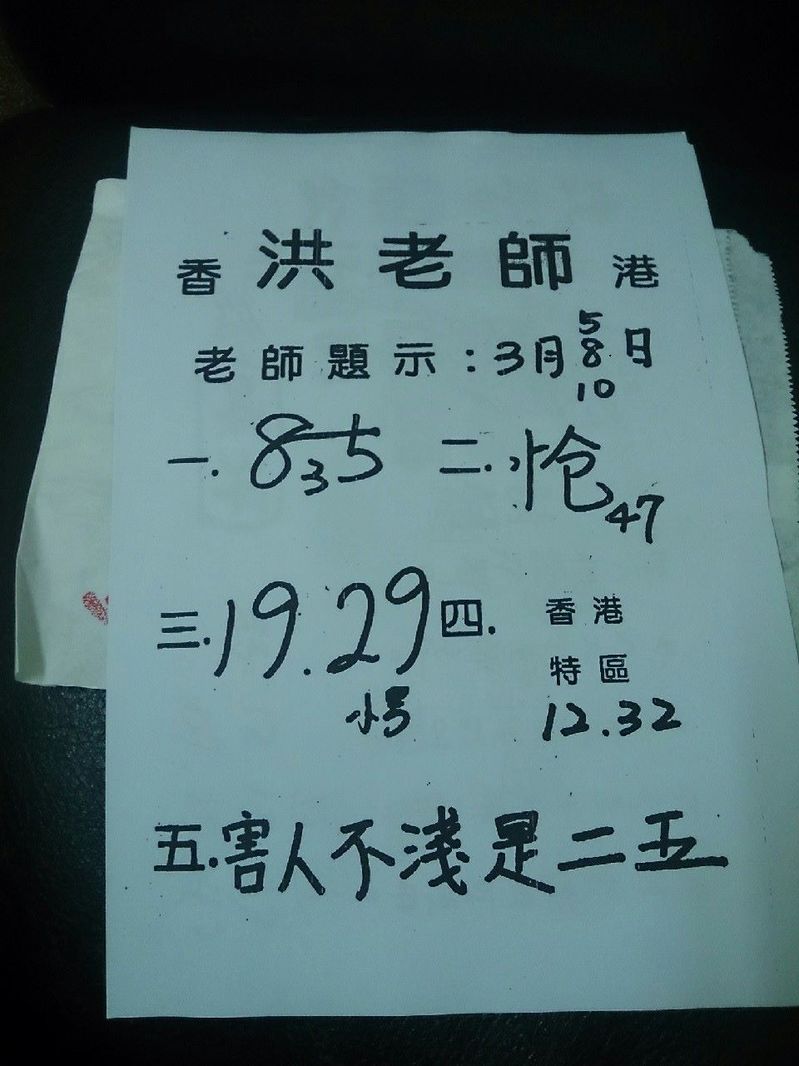 香 洪老師 港
老師題示：3月5 8 10日
一. 835 二. 怆 47
三. 19. 29 四. 香港
小号 特區
12. 32
五. 害人不淺是二五